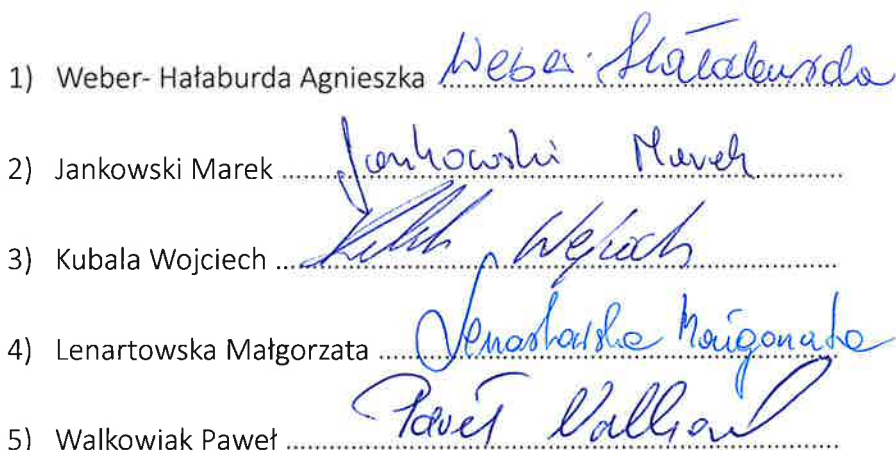 1) Weber- Hałaburda Agnieszka Weber-Hałaburda
2) Jankowski Marek Jankowski Marek
3) Kubala Wojciech Wojciech
4) Lenartowska Małgorzata Lenartowska Małgorzata
5) Walkowiak Paweł Paweł Walkowiak